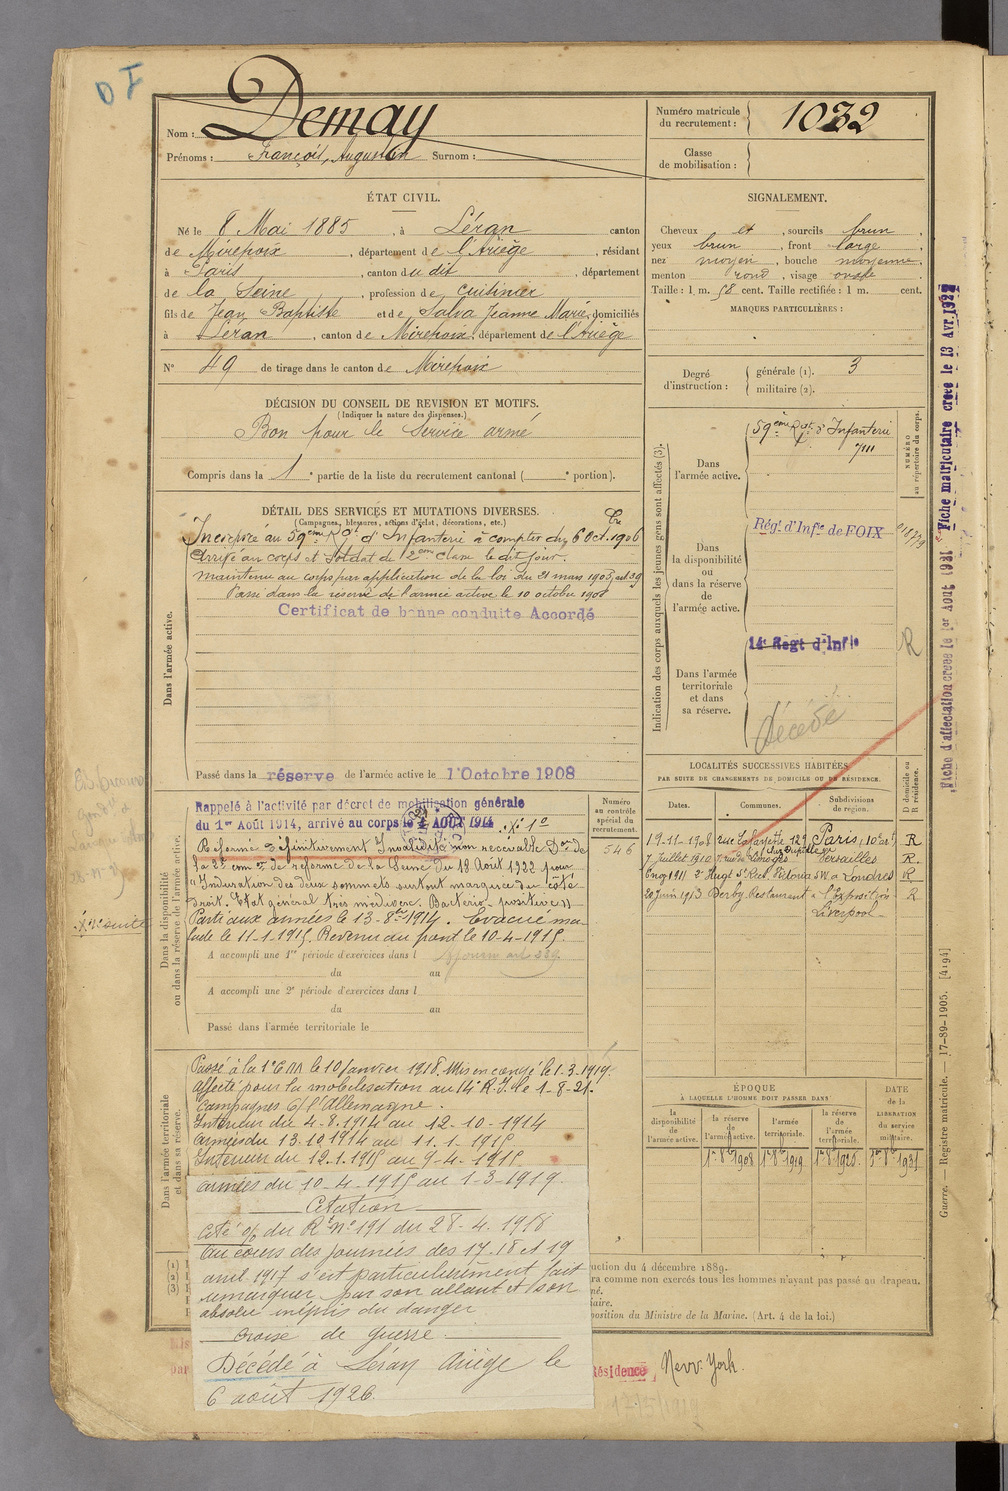 Nom : Demay
Prénoms : François, Augustin Surnom :
Numéro matricule du recrutement : 1032
Classe de mobilisation :
ÉTAT CIVIL.
Né le 8 Mai 1885, à Léran canton
de Mirepoix, département de l'Ariège, résidant
à Paris, canton du dit, département
de la Seine, profession de cuisinier
fils de Jean Baptiste et de Salva Jeanne Marie, domiciliés
à Léran, canton de Mirepoix, département de l'Ariège
N° 49 de tirage dans le canton de Mirepoix
SIGNALEMENT.
Cheveux et, sourcils brun,
yeux brun, front large,
nez moyen, bouche moyenne,
menton rond, visage ovale
Taille : 1 m. 58 cent. Taille rectifiée : 1 m. cent.
MARQUES PARTICULIÈRES :
Degré d'instruction : générale (1). 3
militaire (2).
DÉCISION DU CONSEIL DE REVISION ET MOTIFS.
(Indiquer la nature des dispenses.)
Bon pour le Service armé
Compris dans la 1e partie de la liste du recrutement cantonal ( e portion).
DÉTAIL DES SERVICES ET MUTATIONS DIVERSES.
(Campagnes, blessures, actions d'éclat, décorations, etc.)
Incorporé au 59ème Rgt d'Infanterie à compter du 6 Oct. 1906
Arrivé au corps et soldat de 2eme classe le dit jour.
Maintenu au corps par application de la loi du 21 mars 1905, art. 39
Passé dans la réserve de l'armée active le 10 octobre 1908
Certificat de bonne conduite Accordé
Dans l'armée active.
Passé dans la réserve de l'armée active le 1 Octobre 1908
Indication des corps auxquels les jeunes gens sont affectés (3).
NUMÉRO au répertoire du corps.
Dans l'armée active.
59ème Rgt d'Infanterie
Dans la disponibilité ou dans la réserve de l'armée active.
Régt d'Infie de FOIX
Dans l'armée territoriale et dans sa réserve.
14e Régt d'Infie
R
décédé
LOCALITÉS SUCCESSIVES HABITÉES
PAR SUITE DE CHANGEMENTS DE DOMICILE OU DE RÉSIDENCE.
Dates. Communes. Subdivisions de région. D domicile ou R résidence.
19-11-1908 rue Lafayette 129 Paris, 10e at R
7 Juillet 1910 7 rue de Limoges Versailles R.
Londres R
20 Juin 1913 Derby Restaurant l'Exposition R
Liverpool
Rappelé à l'activité par décret de mobilisation générale
du 1er Août 1914, arrivé au corps le 4 AOUT 1914
Numéro au contrôle spécial du recrutement.
546
Réformé définitivement Invalidité non recevable Don de
la 2e comon de réforme de la Seine du 18 Août 1922 pour
"Induration des deux sommets surtout marquée du côté
droit. Etat général très médiocre. Bactério positive"
Parti aux armées le 13-8bre 1914. Evacué ma-
lade le 11-1-1915. Revenu au front le 10-4-1915.
A accompli une 1re période d'exercices dans l
du au
A accompli une 2e période d'exercices dans l
du au
Passé dans l'armée territoriale le
Dans la disponibilité ou dans la réserve de l'armée active.
Passé à la 1e C M le 10 Janvier 1918. Mis en congé le 1-3-1919.
Affecté pour la mobilisation au 14e R.I. le 1-8-21.
Campagnes C/ l'Allemagne.
Intérieur du 4-8-1914 au 12-10-1914
Armées du 13-10-1914 au 11-1-1915
Intérieur du 12-1-1915 au 9-4-1915
Armées du 10-4-1915 au 1-3-1919.
Citation
Cité O/ du Rt N° 191 du 28-4-1918
Au cours des journées des 17-18 et 19
avril 1917 s'est particulièrement fait
remarquer par son allant et son
absolu mépris du danger
Croix de guerre
Décédé à Léran Ariège le
6 août 1926
Dans l'armée territoriale et dans sa réserve.
ÉPOQUE
À LAQUELLE L'HOMME DOIT PASSER DANS
la disponibilité de l'armée active.
la réserve de l'armée active.
l'armée territoriale.
la réserve de l'armée territoriale.
DATE de la LIBÉRATION du service militaire.
1er 8bre 1908
(1)
(2)
(3)
uction du 4 décembre 1889.
ra comme non exercés tous les hommes n'ayant pas passé au drapeau.
né.
iaire.
position du Ministre de la Marine. (Art. 4 de la loi.)
Résidence New-York.
Fiche d'affectation créée le 1er Août 1921
Fiche matriculaire créée le 13 Avr. 1927
Guerre. — Registre matricule. — 17-89-1905. [4194]